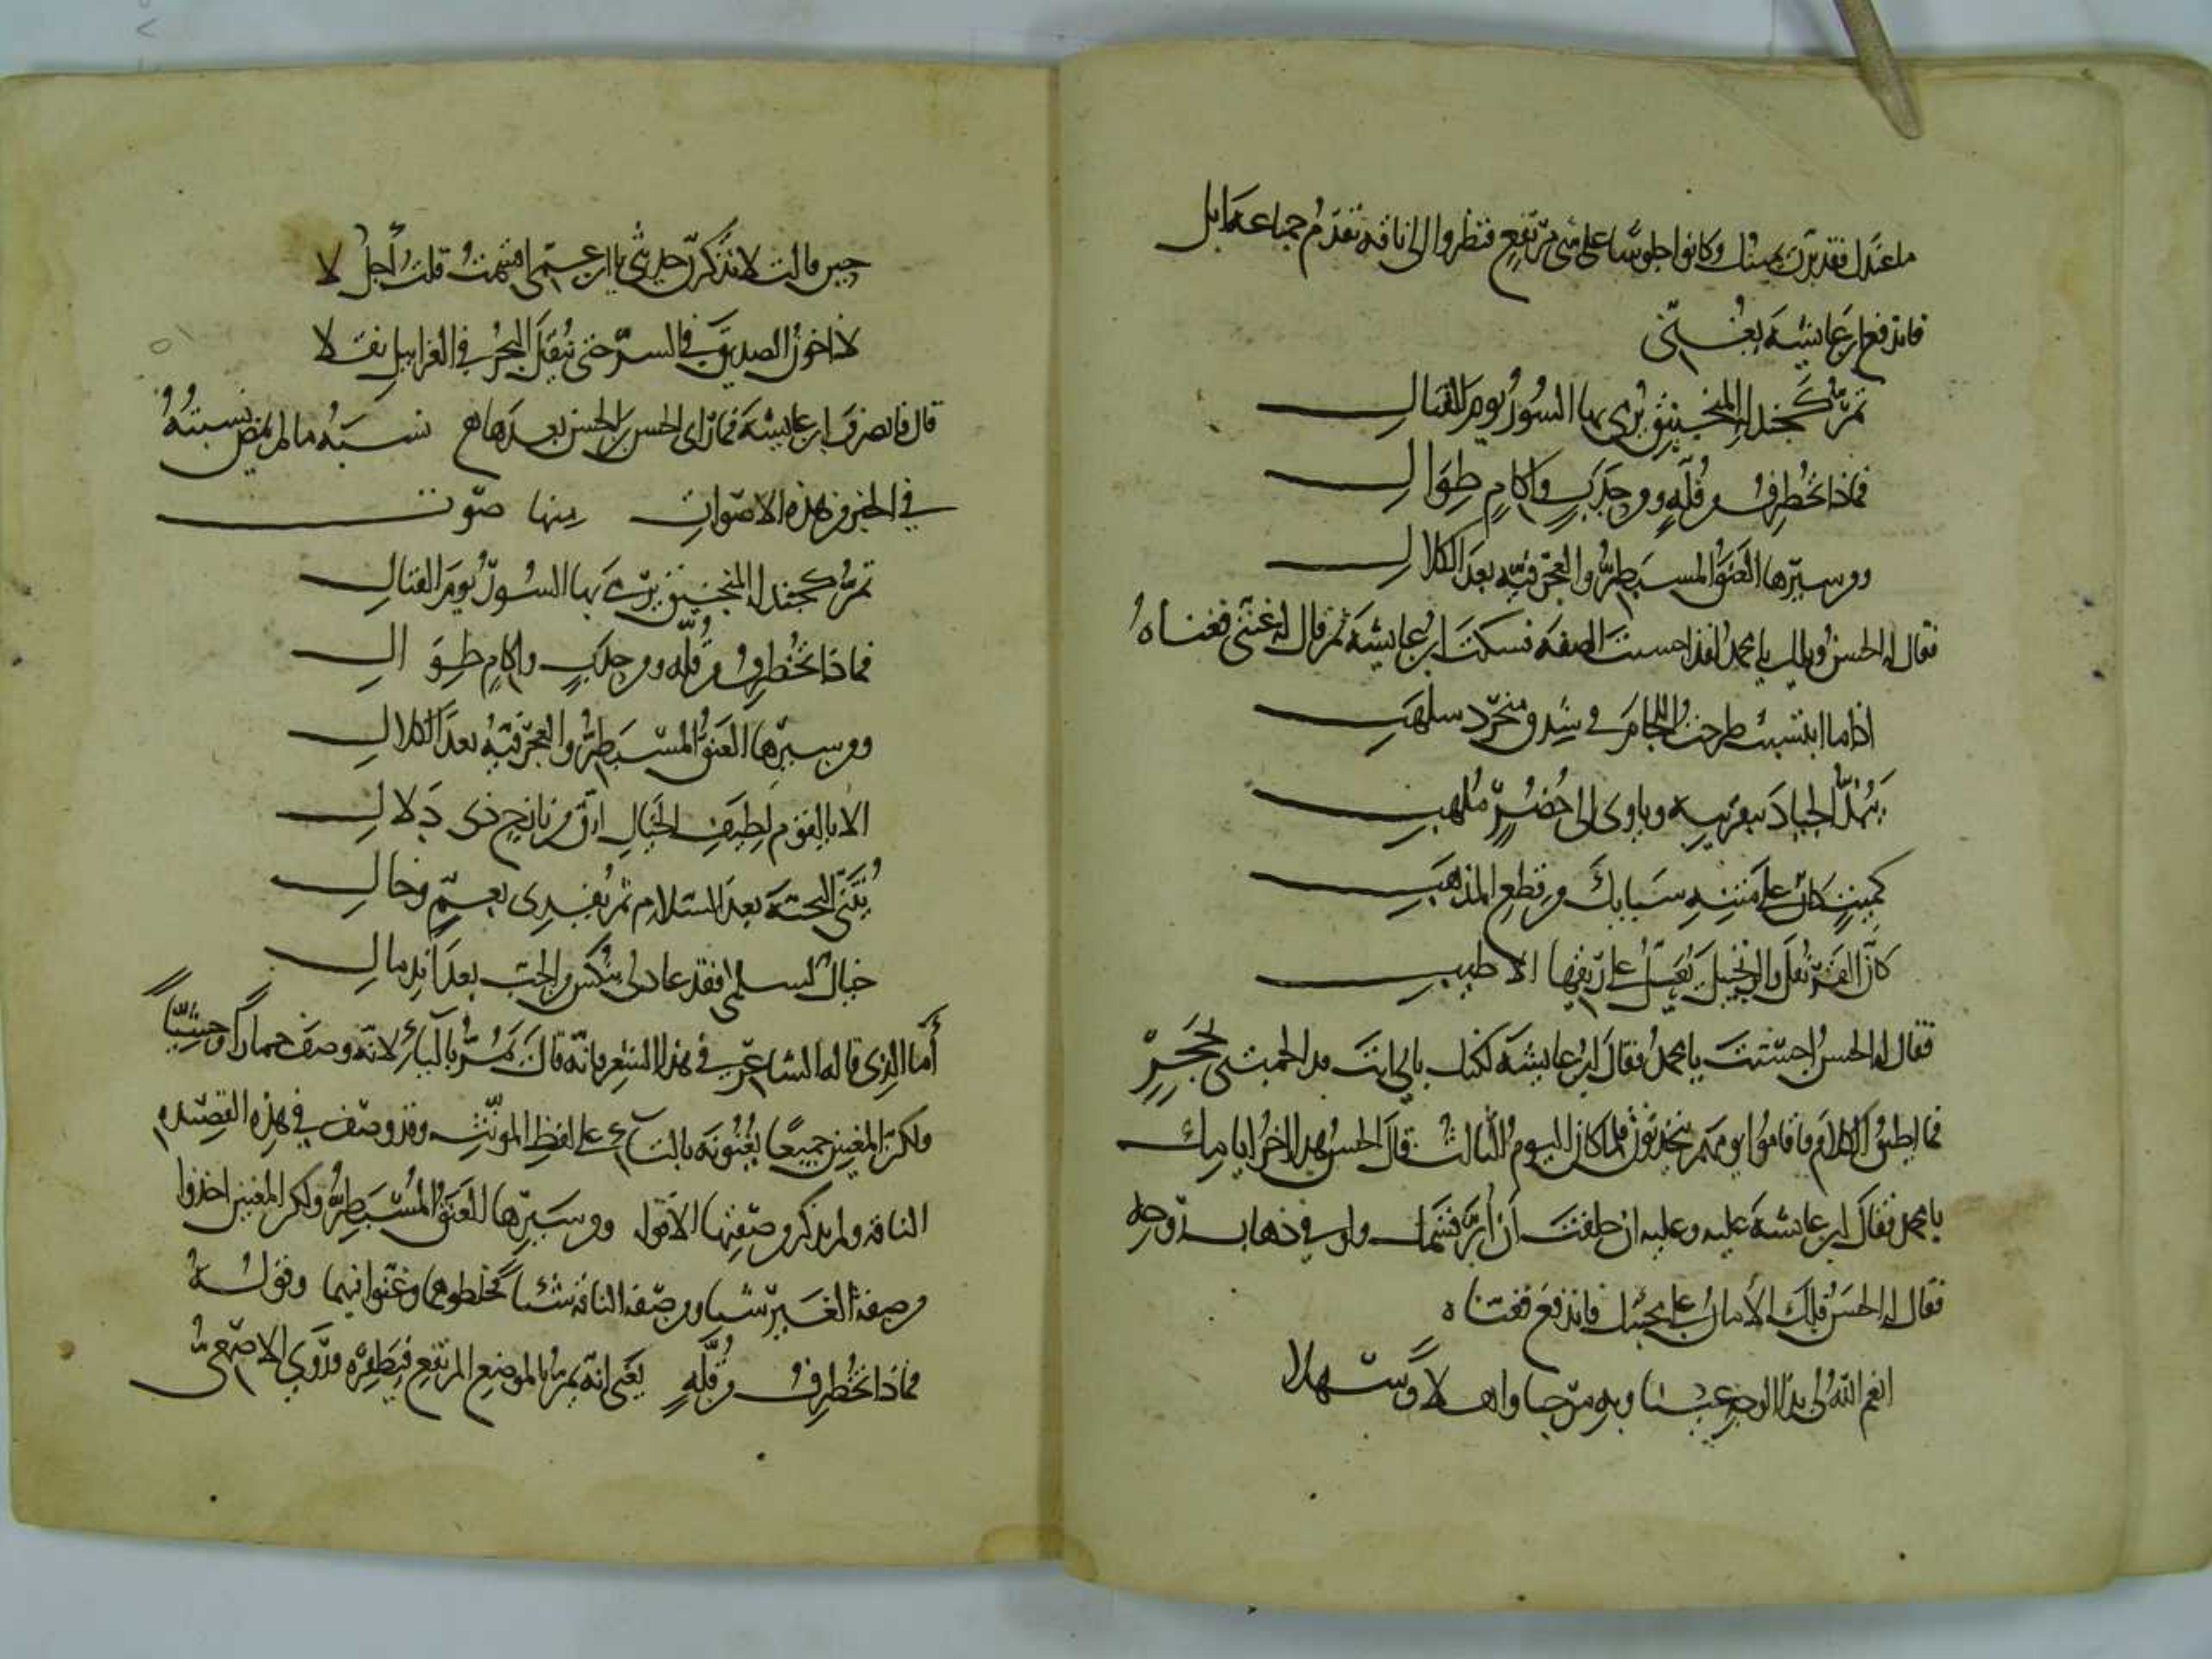 ما عندك فقد برت يمينك وكانوا جلوسا على شيء مرتفع فنظروا الى ناقة تقدم جماعة ابل
فاندفع ابن عايشة يغني
تمر كجندلة المنجنيق يرمى بها السور يوم القتال
فماذا تخطرف من قلة ومن حدب واكام طوال
ومن سيرها العنق المسبطر والعجرفية بعد الكلال
فقال له الحسن ويلك يا محمد لقد احسنت الصفة فسكت ابن عايشة ثم قال له غنني فغناه
اذا ما انتشيت طرحت اللجام في شدق منجرد سلهب
يبذ الجياد بتقريبه وياوى الى حضر ملهب
كميت كان على متنه سبايك من قطع المذهب
كان القرنفل والزنجبيل يعل على ريقها الاطيب
فقال له الحسن احسنت يا محمد فقال ابن عايشة لكنك بابي انت قد الجمتني بحجر
فما اطيق الكلام فاقاموا يومهم يتحدثون فلما كان اليوم الثالث قال الحسن هذا اخر ايامك
يا محمد فقال ابن عايشة عليه وعليه ان حلفت ان ابر قسمك ولو في ذهاب روحه
فقال له الحسن فلك الامان على محبتك فاندفع فغناه
انعم الله لي بذا الوجه عينا وبه مرحبا واهلا وسهلا
حين قالت لا تذكرن حديثي يا ابن عمي اقسمت قلت اجل لا
لا اخون الصديق في السر حتى ينقل البحر في الغرابيل نقلا
قال فانصرف ابن عايشة فما راى الحسن بن الحسن بعدها نسبة ما لم تمض نسبته
في الخبر من هذه الاصوات منها صوت
تمر كجندلة المنجنيق يرمى بها السور يوم القتال
فماذا تخطرف من قلة ومن حدب واكام طوال
ومن سيرها العنق المسبطر والعجرفية بعد الكلال
الا يا لقوم لطيف الخيال ارق من نازح ذى دلال
يثني التحية بعد السلام ثم يفدى بعم وخال
خيال لسلمى فقد عاد لي بنكس من الحب بعد اندمال
أما الذى قاله الشاعر في هذا الشعر فانه قال يمر بالياء لانه وصف حمارا وحشيا
ولكن المغنين جميعا يغنونه بالتاء على لفظ المونث وقد وصف في هذه القصيدة
الناقة ولم يذكر من صفتها الا قوله ومن سيرها العنق المسبطر ولكن المغنين اخذوا
من صفة العير شيا ومن صفة الناقة شيا فخلطوهما وغنوا فيهما وقوله
فماذا تخطرف من قلة يعنى انه يمر بالموضع المرتفع فيطفره وروى الاصمعي